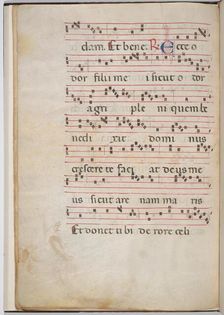 dam. Et bene. R Ecce o
dor filii me i sicut o dor
agri ple ni quem be
nedi xit domi nus
crescere te faci at deus me
us sicut are nam ma ris
Et donet ti bi de rore celi